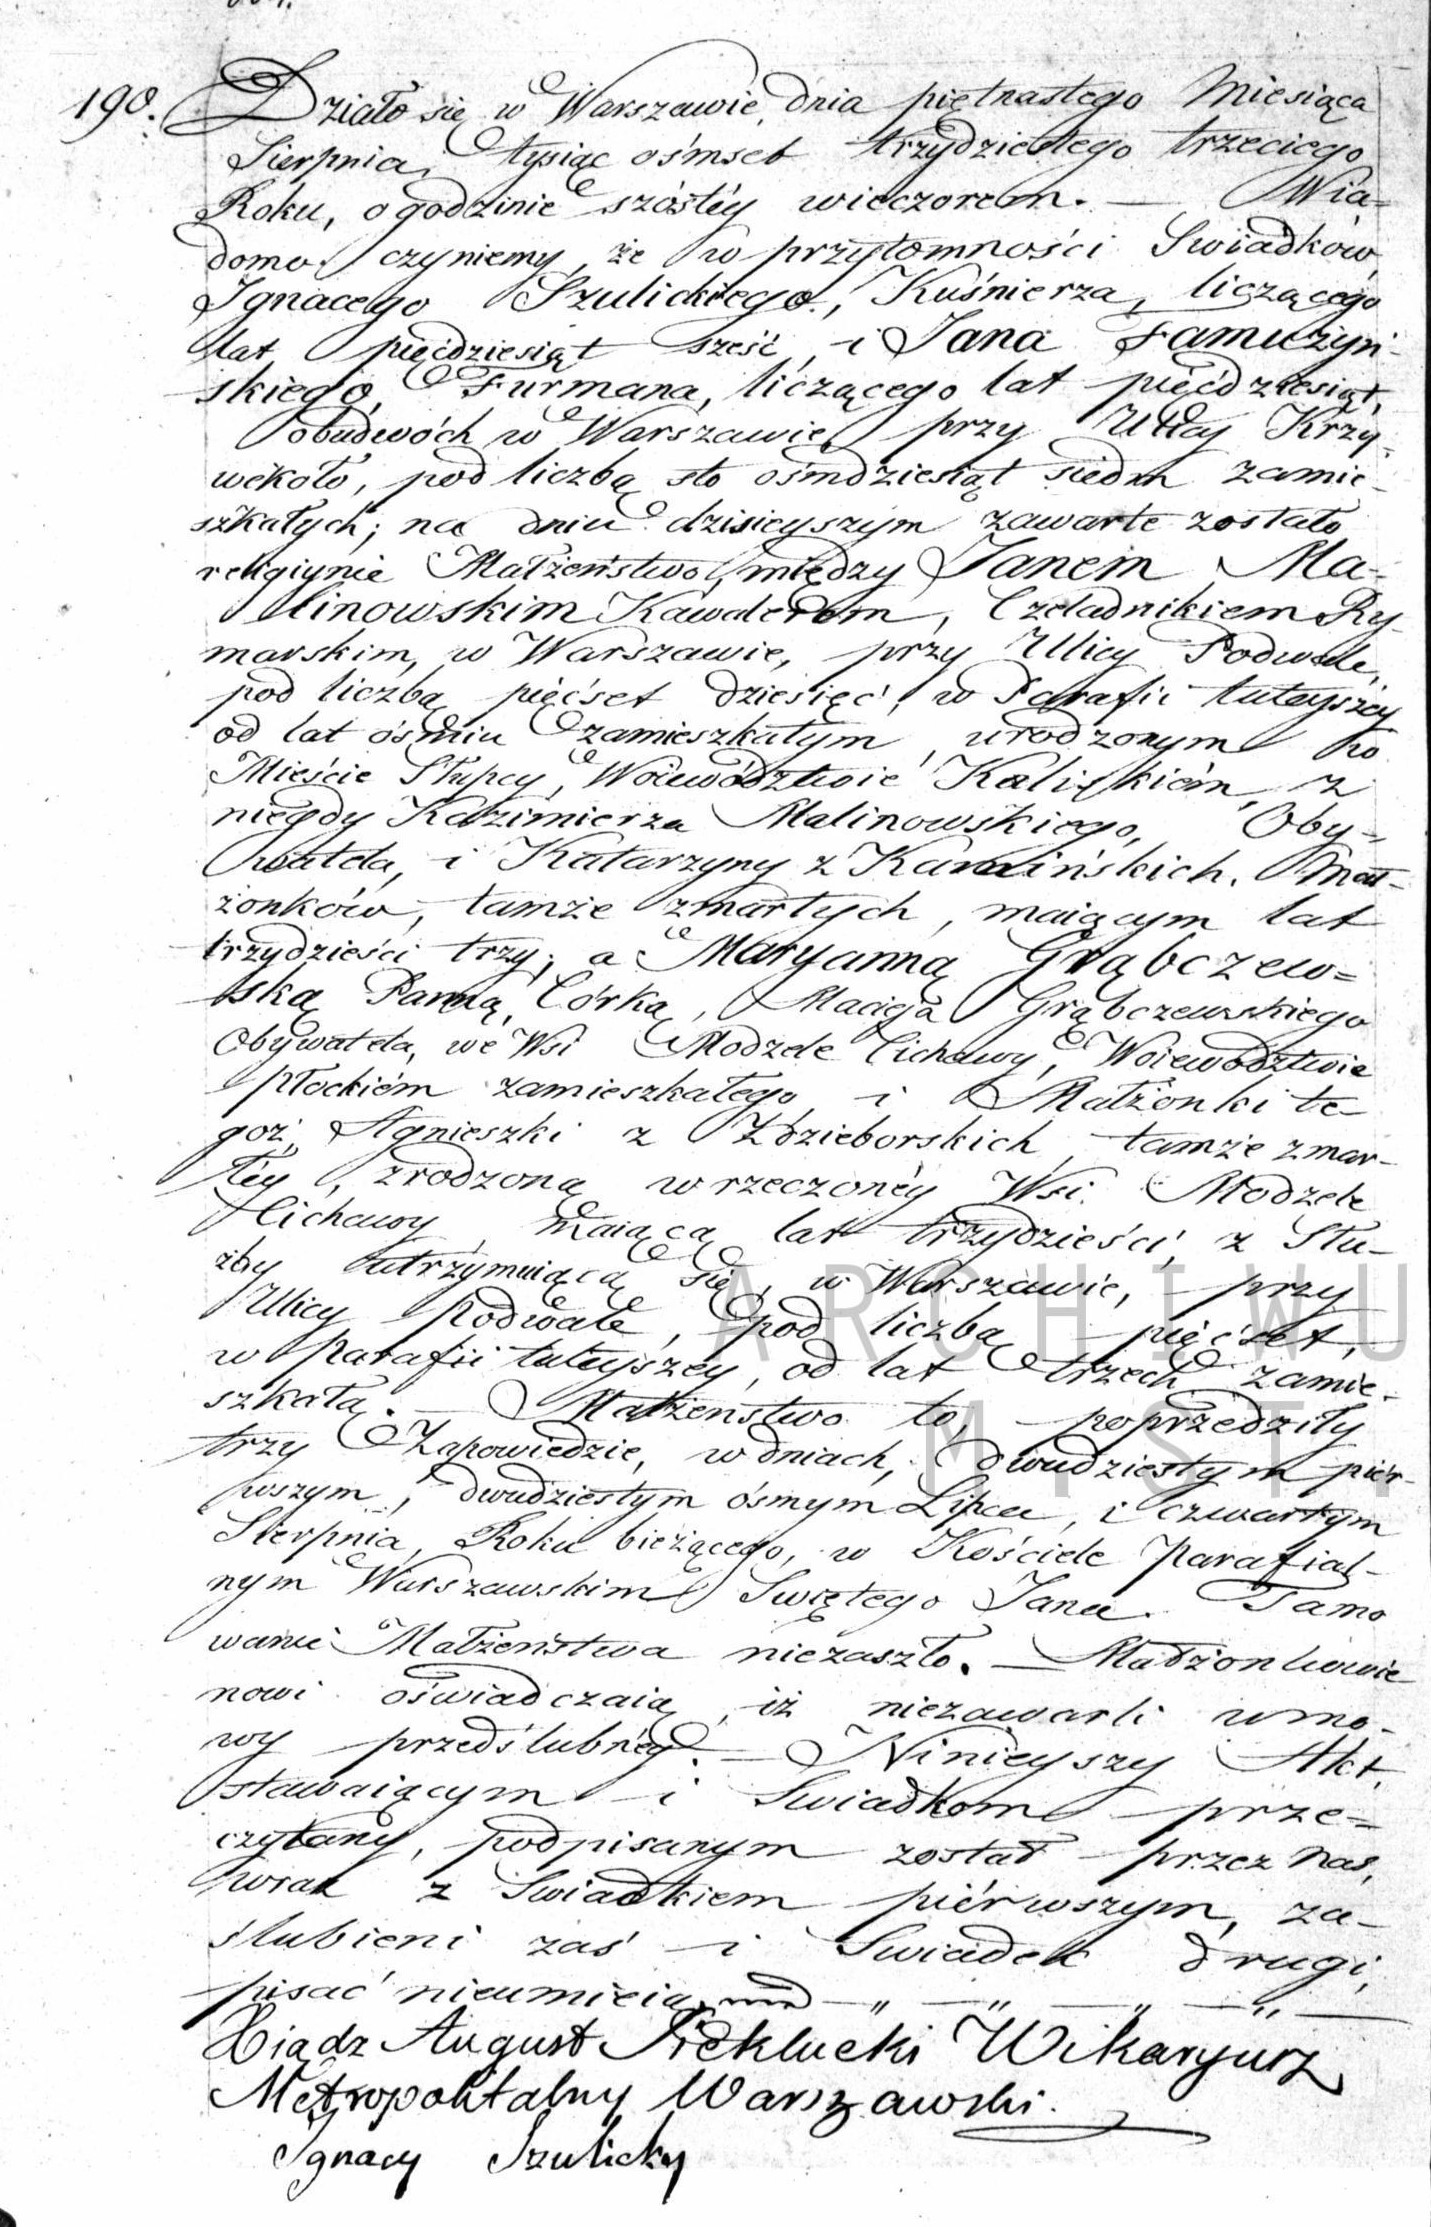 190. Działo się w Warszawie, dnia piętnastego Miesiąca
Sierpnia, tysiąc ośmset trzydziestego trzeciego
Roku, o godzinie szóstéy wieczorem. — Wia=
domo czyniemy, że w przytomności Swiadków
Ignacego Szulickiego, Kuśnierza, liczącego
lat pięćdziesiąt sześć, i Jana Famużyń-
skiego, Furmana, liczącego lat pięćdziesiąt,
obudwóch w Warszawie, przy Ulicy Krzy-
wékoło, pod liczbą sto ośmdziesiąt siedm zamie-
szkałych; na dniu dzisieyszym zawarte zostało
religiynie Małżeństwo, między Janem Ma-
linowskim Kawalerem, Czeladnikiem Ry-
marskim, w Warszawie, przy Ulicy Podwale,
pod liczbą pięćset dziesięć, w Parafii tuteyszéy
od lat ośmiu zamieszkałym, urodzonym w
Mieście Słupcy, Woiewództwie Kaliskiém, z
niegdy Kazimierza Malinowskiego, Oby-
watela, i Katarzyny z Kamińskich, Mał-
żonków, tamże zmarłych, maiącym lat
trzydzieści trzy; a Maryanną Grąbczew=
ską Panną, Córką, Macieja Grąbczewskiego
Obywatela, we Wsi Modzele Cichawy, Woiewództwie
Płockiém zamieszkałego i Małżonki te-
goż, Agnieszki z Zdzieborskich, tamże zmar-
łéy, zrodzoną w rzeczonéy Wsi Modzele
Cichawy, maiącą lat trzydzieści, z Słu-
żby utrzymuiącą się, w Warszawie, przy
Ulicy Podwale, pod liczbą pięćset,
w Parafii tuteyszéy, od lat trzech zamie-
szkałą. — Małżeństwo to, poprzedziły
trzy Zapowiedzie, w dniach, dwudziestym piér-
wszym, dwudziestym ósmym Lipca, i czwartym
Sierpnia, Roku bieżącego, w Kościele Parafial-
nym Warszawskim Swiętego Jana. Tamo
wanie Małżeństwa niezaszło. — Małżonkowie
nowi oświadczaią, iż niezawarli umo-
wy przedślubnéy. — Ninieyszy Akt,
stawaiącym i Swiadkom prze=
czytany, podpisanym został przez nas,
wraz z Swiadkiem piérwszym, za-
ślubieni zaś i Swiadek drugi,
pisać nieumieią. — „ — „ — „ — „ —
Xiądz August Wikaryusz
Metropolitalny Warszawski.
Ignacy Szulicky
ARCHIWU
M ST.